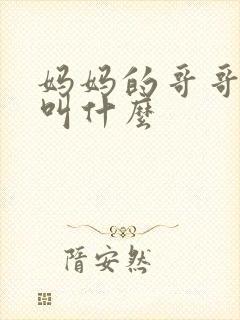 妈妈的哥哥
叫什麽
隋安然